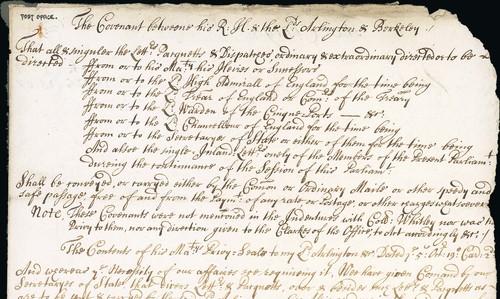 POST OFFICE.
The Covenant betweene his R: H: & the Ld Arlington & Berkeley:/
That all & singuler the Lettrs Pacquetts & Dispatches ordinary & extraordinary directed or to be
directed
ffrom or to his Matie his Heires or Successors
ffrom or to the Ld High Admirall of England for the time being
ffrom or to the Ld Trear of England or Comrs of the Treary
ffrom or to the Ld Warden of the Cinque Ports — &c:
ffrom or to the Ld Chancellour of England for the time being
ffrom or to the Secretaryes of State or either of them for the time being
And alsoe the single Inland Lettrs onely of the Members of the Present Parliamt
dureing the continuance of the Session of this Parliamt.
Shall be conveyed or carryed either by the Comon or Ordinary Maile or other speedy and
safe passage free of and from the Paymt of any rate or Postage or other charges whatsoever
Note These Covenants were not mentioned in the Indentures with Coll: Whitley nor was he
Privy to them, nor any direction given to the Clarkes of the Office, to Act accordingly &c:/
The Contents of his Maties Privy-Seale to my Ld Arlington &c Dated 5: Oct: 19: Car: 2d
And whereas ye necessity of our affaires soe requireing it, We have given Comand by our
Secretaryes of State that divers Lettrs & Pacquetts, over & besides